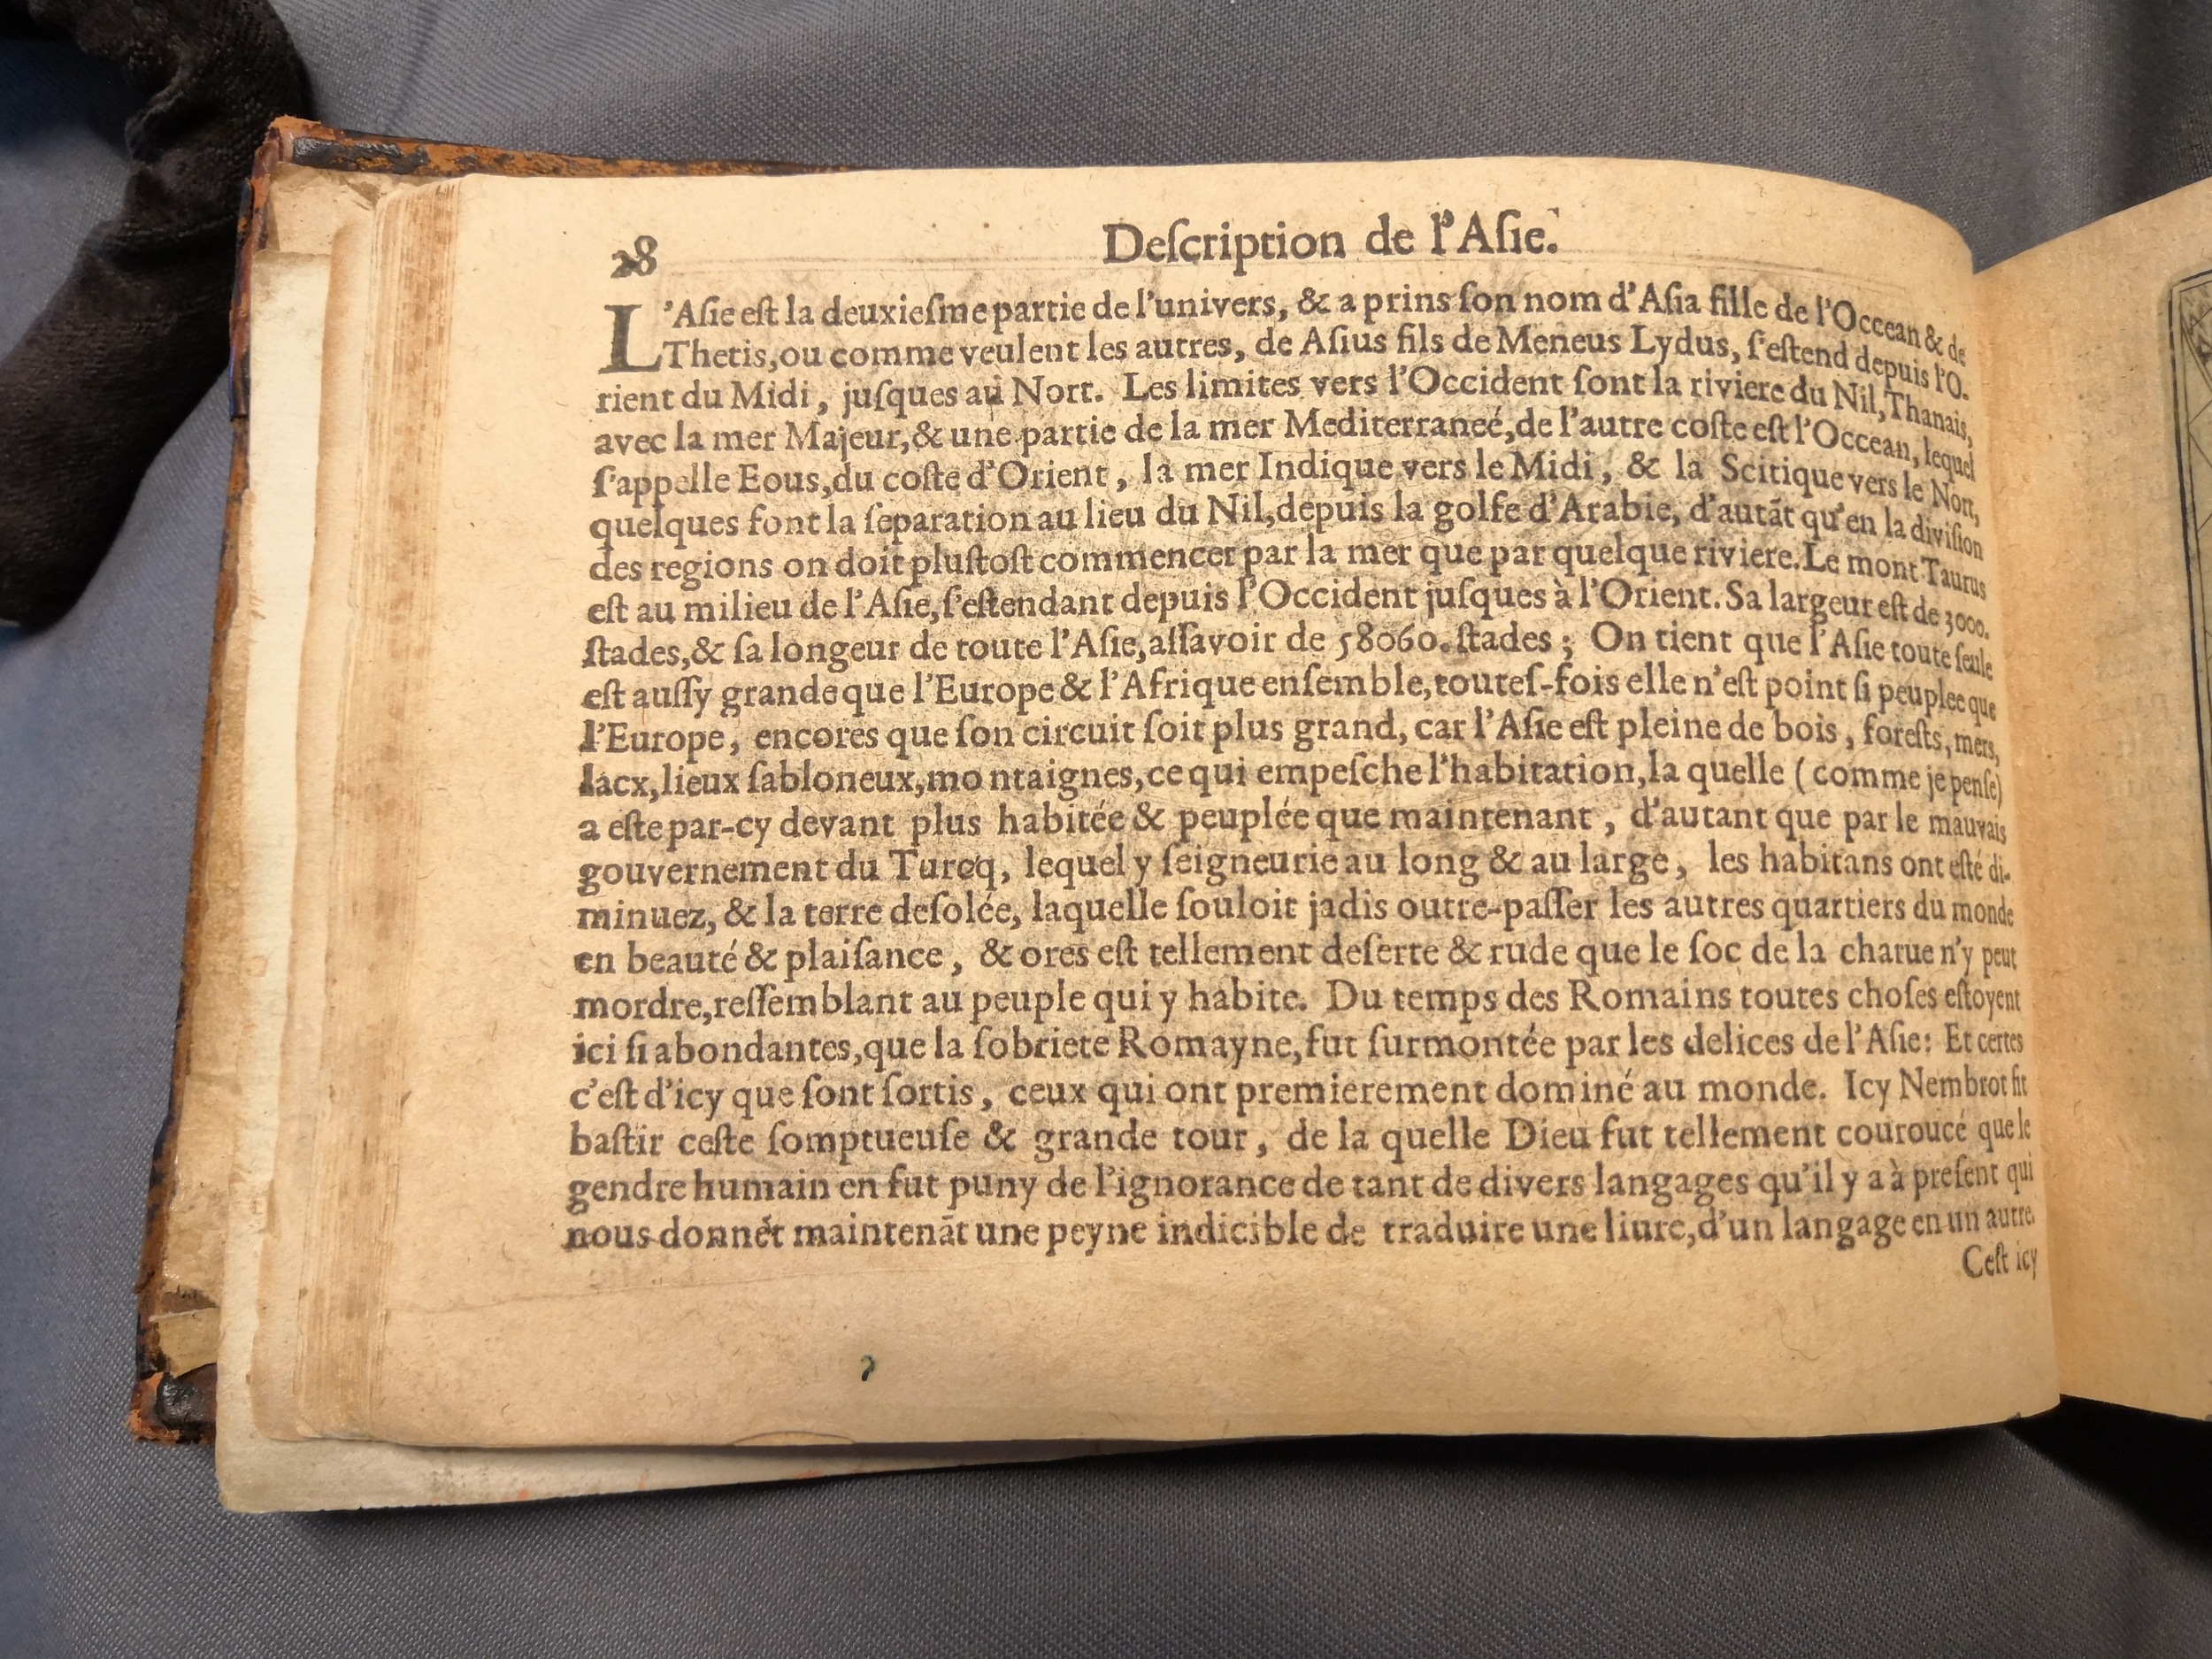 28
Deſcription de l'Aſie.
L'Aſie eſt la deuxieſme partie de l'univers, & a prins ſon nom d'Aſia fille de l'Occean & de
Thetis, ou comme veulent les autres, de Aſius fils de Meneus Lydus, ſ'eſtend depuis l'O-
rient du Midi, juſques au Nort. Les limites vers l'Occident ſont la riviere du Nil, Thanais,
avec la mer Majeur, & une partie de la mer Mediterraneé, de l'autre coſte eſt l'Occean, lequel
ſ'appelle Eous, du coſte d'Orient, la mer Indique vers le Midi, & la Scitique vers le Nort,
quelques font la ſeparation au lieu du Nil, depuis la golfe d'Arabie, d'autãt qu'en la diviſion
des regions on doit pluſtoſt commencer par la mer que par quelque riviere. Le mont Taurus
eſt au milieu de l'Aſie, ſ'eſtendant depuis l'Occident juſques à l'Orient. Sa largeur eſt de 3000.
ſtades, & ſa longeur de toute l'Aſie, aſſavoir de 58060. ſtades; On tient que l'Aſie toute ſeule
eſt auſſy grande que l'Europe & l'Afrique enſemble, touteſ-fois elle n'eſt point ſi peuplee que
l'Europe, encores que ſon circuit ſoit plus grand, car l'Aſie eſt pleine de bois, foreſts, mers,
lacx, lieux ſabloneux, mo ntaignes, ce qui empeſche l'habitation, la quelle (comme je penſe)
a eſte par-cy devant plus habitée & peuplée que maintenant, d'autant que par le mauvais
gouvernement du Turcq, lequel y ſeigneurie au long & au large, les habitans ont eſté di-
minuez, & la terre deſolée, laquelle ſouloit jadis outre-paſſer les autres quartiers du monde
en beauté & plaiſance, & ores eſt tellement deſerte & rude que le ſoc de la charue n'y peut
mordre, reſſemblant au peuple qui y habite. Du temps des Romains toutes choſes eſtoyent
ici ſi abondantes, que la ſobriete Romayne, fut ſurmontée par les delices de l'Aſie: Et certes
c'eſt d'icy que ſont ſortis, ceux qui ont premierement dominé au monde. Icy Nembrot fit
baſtir ceſte ſomptueuſe & grande tour, de la quelle Dieu fut tellement couroucé que le
gendre humain en fut puny de l'ignorance de tant de divers langages qu'il y a à preſent qui
nous donnẽt maintenãt une peyne indicible de traduire une liure, d'un langage en un autre.
Ceſt icy